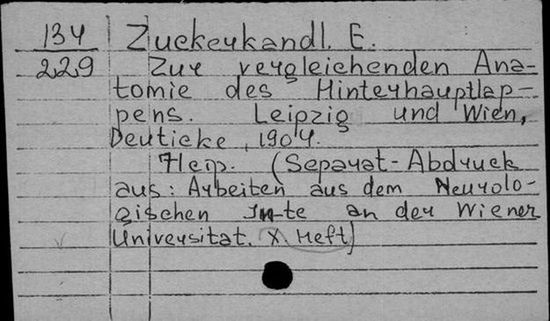 134 Zuckerkandl. E.
229 Zur vergleichenden Ana-
tomie des Hinterhauptlap-
pens. Leipzig und Wien,
Deuticke, 1904.
(Separat-Abdruck
aus: Arbeiten aus dem Neurolo-
gischen In-te an der Wiener
Universitat. X Heft)